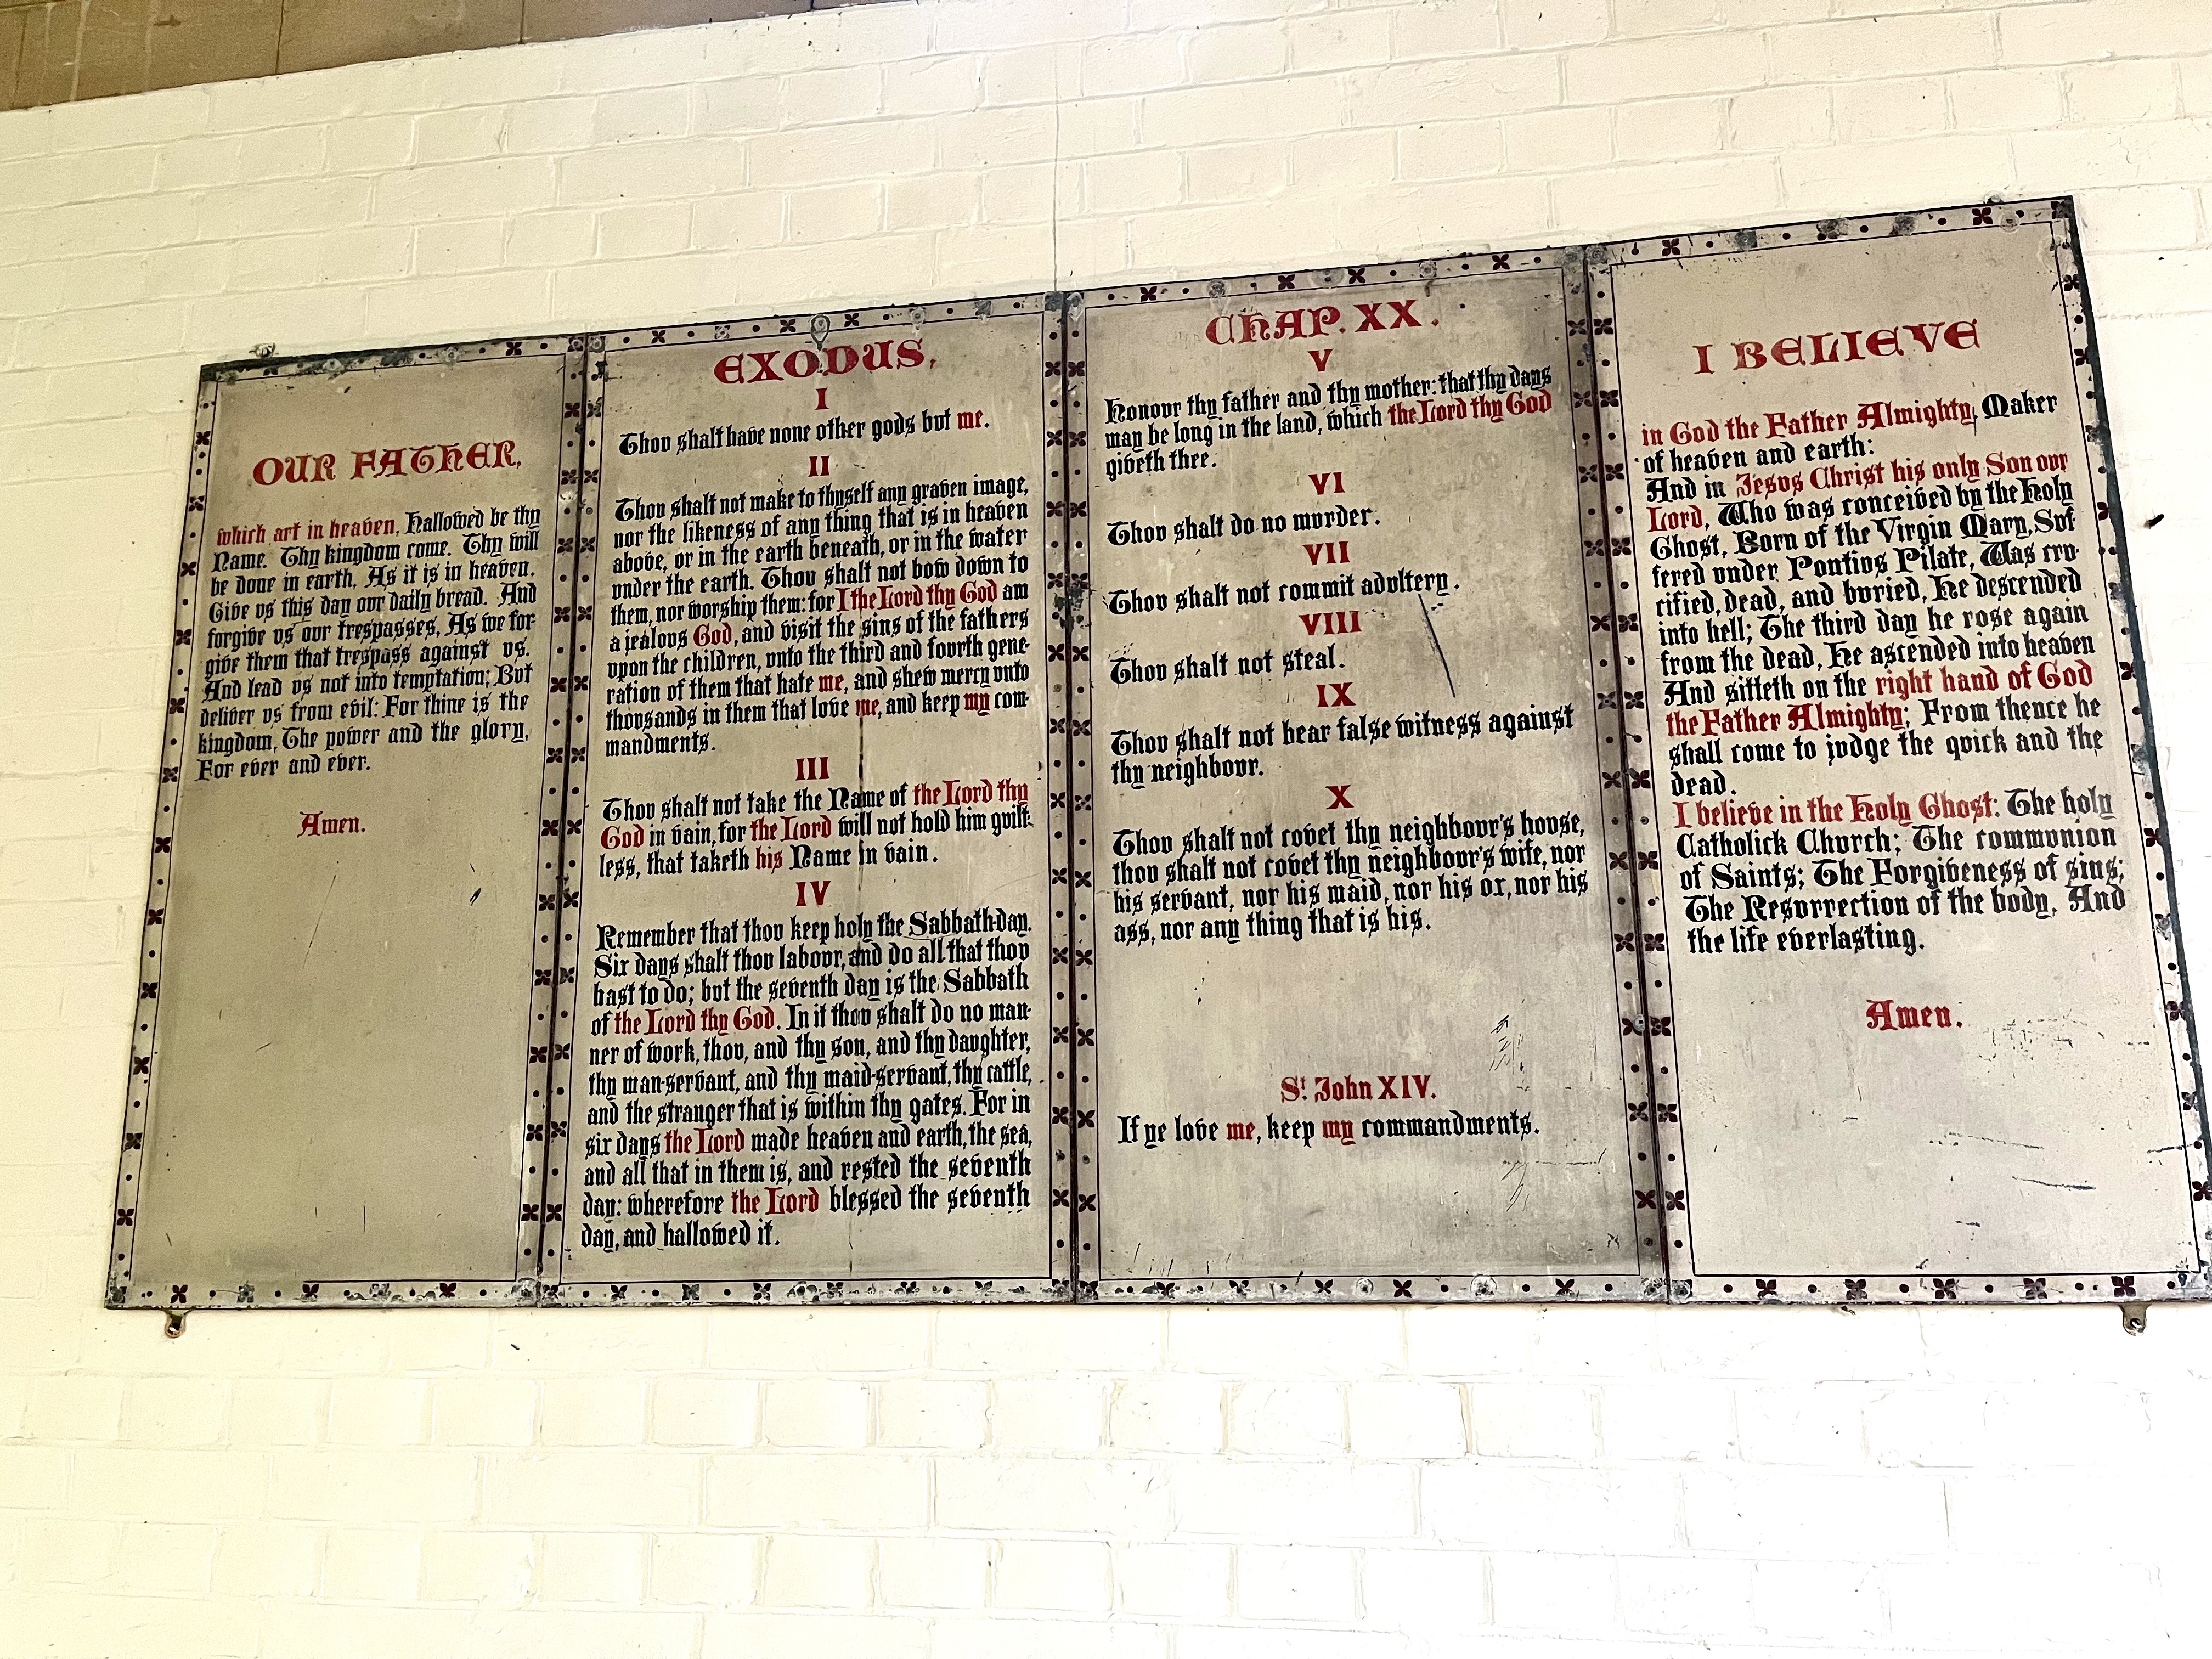 OUR FATHER,
which art in heaven, Hallowed be thy
Name. Thy kingdom come. Thy will
be done in earth, As it is in heaven.
Give vs this day ovr daily bread. And
forgive vs ovr trespasses, As we for-
give them that trespass against vs.
And lead vs not into temptation; Bvt
deliver vs from evil: For thine is the
kingdom, The power and the glory,
For ever and ever.
Amen.
EXODUS,
I
Thov shalt have none other gods bvt me.
II
Thov shalt not make to thyself any graven image,
nor the likeness of any thing that is in heaven
above, or in the earth beneath, or in the water
vnder the earth. Thov shalt not bow down to
them, nor worship them: for I the Lord thy God am
a jealovs God, and visit the sins of the fathers
vpon the children, vnto the third and fovrth gene-
ration of them that hate me, and shew mercy vnto
thovsands in them that love me, and keep my com-
mandments.
III
Thov shalt not take the Name of the Lord thy
God in vain, for the Lord will not hold him gvilt-
less, that taketh his Name in vain.
IV
Remember that thov keep holy the Sabbath-day.
Six days shalt thov labovr, and do all that thov
hast to do; bvt the seventh day is the Sabbath
of the Lord thy God. In it thov shalt do no man-
ner of work, thov, and thy son, and thy davghter,
thy man-servant, and thy maid-servant, thy cattle,
and the stranger that is within thy gates. For in
six days the Lord made heaven and earth, the sea,
and all that in them is, and rested the seventh
day: wherefore the Lord blessed the seventh
day, and hallowed it.
CHAP. XX.
V
Honovr thy father and thy mother: that thy days
may be long in the land, which the Lord thy God
giveth thee.
VI
Thov shalt do no mvrder.
VII
Thov shalt not commit advltery.
VIII
Thov shalt not steal.
IX
Thov shalt not bear false witness against
thy neighbovr.
X
Thov shalt not covet thy neighbovr's hovse,
thov shalt not covet thy neighbovr's wife, nor
his servant, nor his maid, nor his ox, nor his
ass, nor any thing that is his.
St John XIV.
If ye love me, keep my commandments.
I BELIEVE
in God the Father Almighty, Maker
of heaven and earth:
And in Jesvs Christ his only Son ovr
Lord, Who was conceived by the Holy
Ghost, Born of the Virgin Mary, Svf-
fered vnder Pontivs Pilate, Was crv-
cified, dead, and bvried, He descended
into hell; The third day he rose again
from the dead, He ascended into heaven
And sitteth on the right hand of God
the Father Almighty; From thence he
shall come to jvdge the qvick and the
dead.
I believe in the Holy Ghost: The holy
Catholick Chvrch; The commvnion
of Saints; The Forgiveness of sins;
The Resvrrection of the body, And
the life everlasting.
Amen.